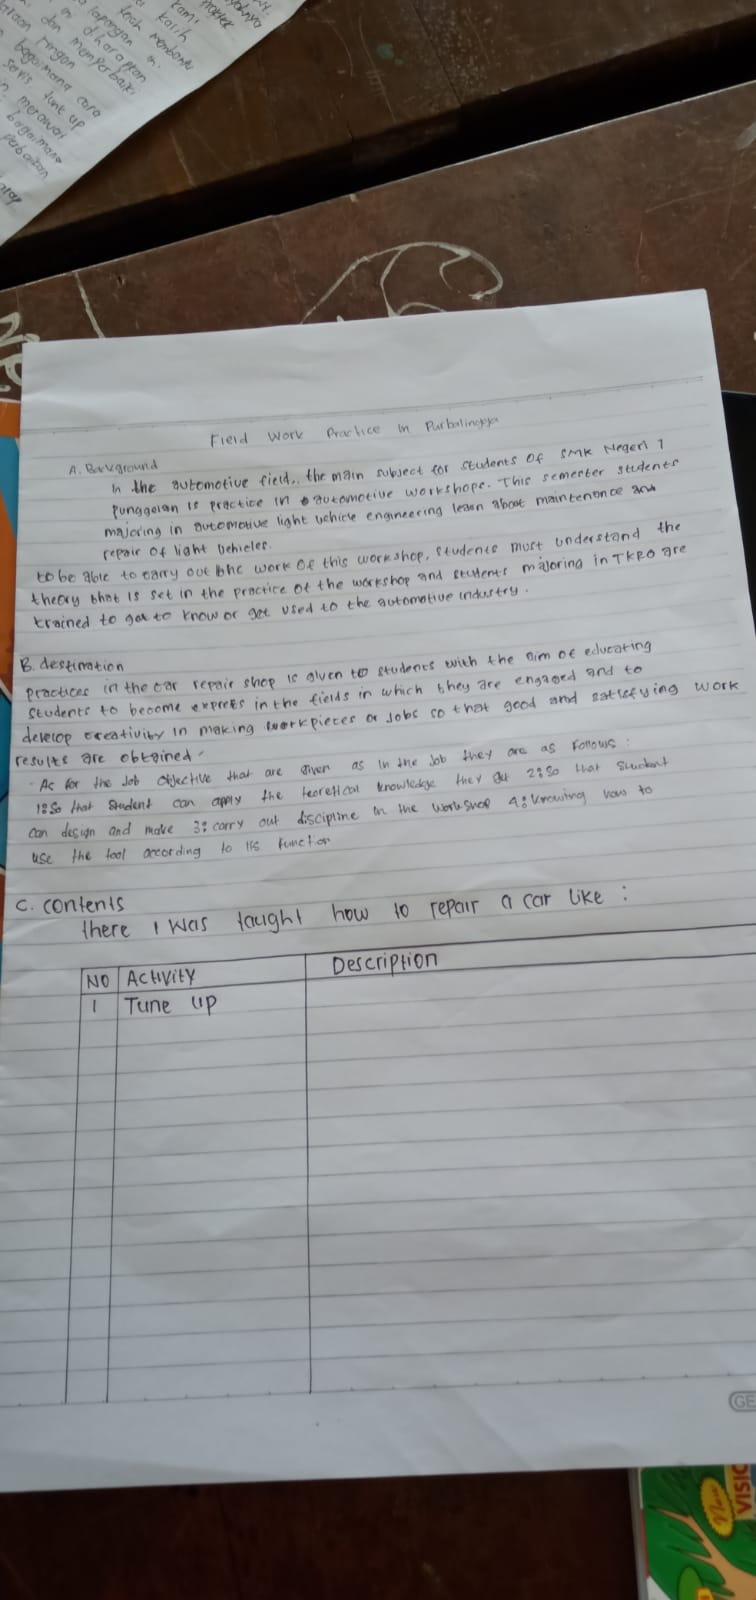 kami
kalih
lapangan
dharapkan
dan memperbaiki
ringan
bagaimana cara
servis tune up
merawat
bagaimana
perbaikan
Field Work Practice in Purbalingga
A. Background
In the automotive field,. the main subject for students of SMK Negeri 1
Punggelan is practice in automotive workshops. This semester students
majoring in automotive light vehicle engineering learn about maintenance and
repair of light vehicles.
to be able to carry out the work of this workshop, students must understand the
theory that is set in the practice of the workshop and students majoring in TKRO are
trained to get to know or get used to the automotive industry.
B. destination
practices in the car repair shop is given to students with the aim of educating
students to become exprets in the fields in which they are engaged and to
develop creativity in making workpieces or Jobs so that good and satisfying work
results are obtained.
As for the Job Objective that are given as in the Job they are as Follows :
1: So that student can apply the teoretical knowledge they get 2: So that Student
can design and make 3: carry out discipline in the workshop 4: knowing how to
use the tool according to its function
C. contents
there I was taught how to repair a car like :
NO Activity Description
1 Tune up
GE
New
VISIO